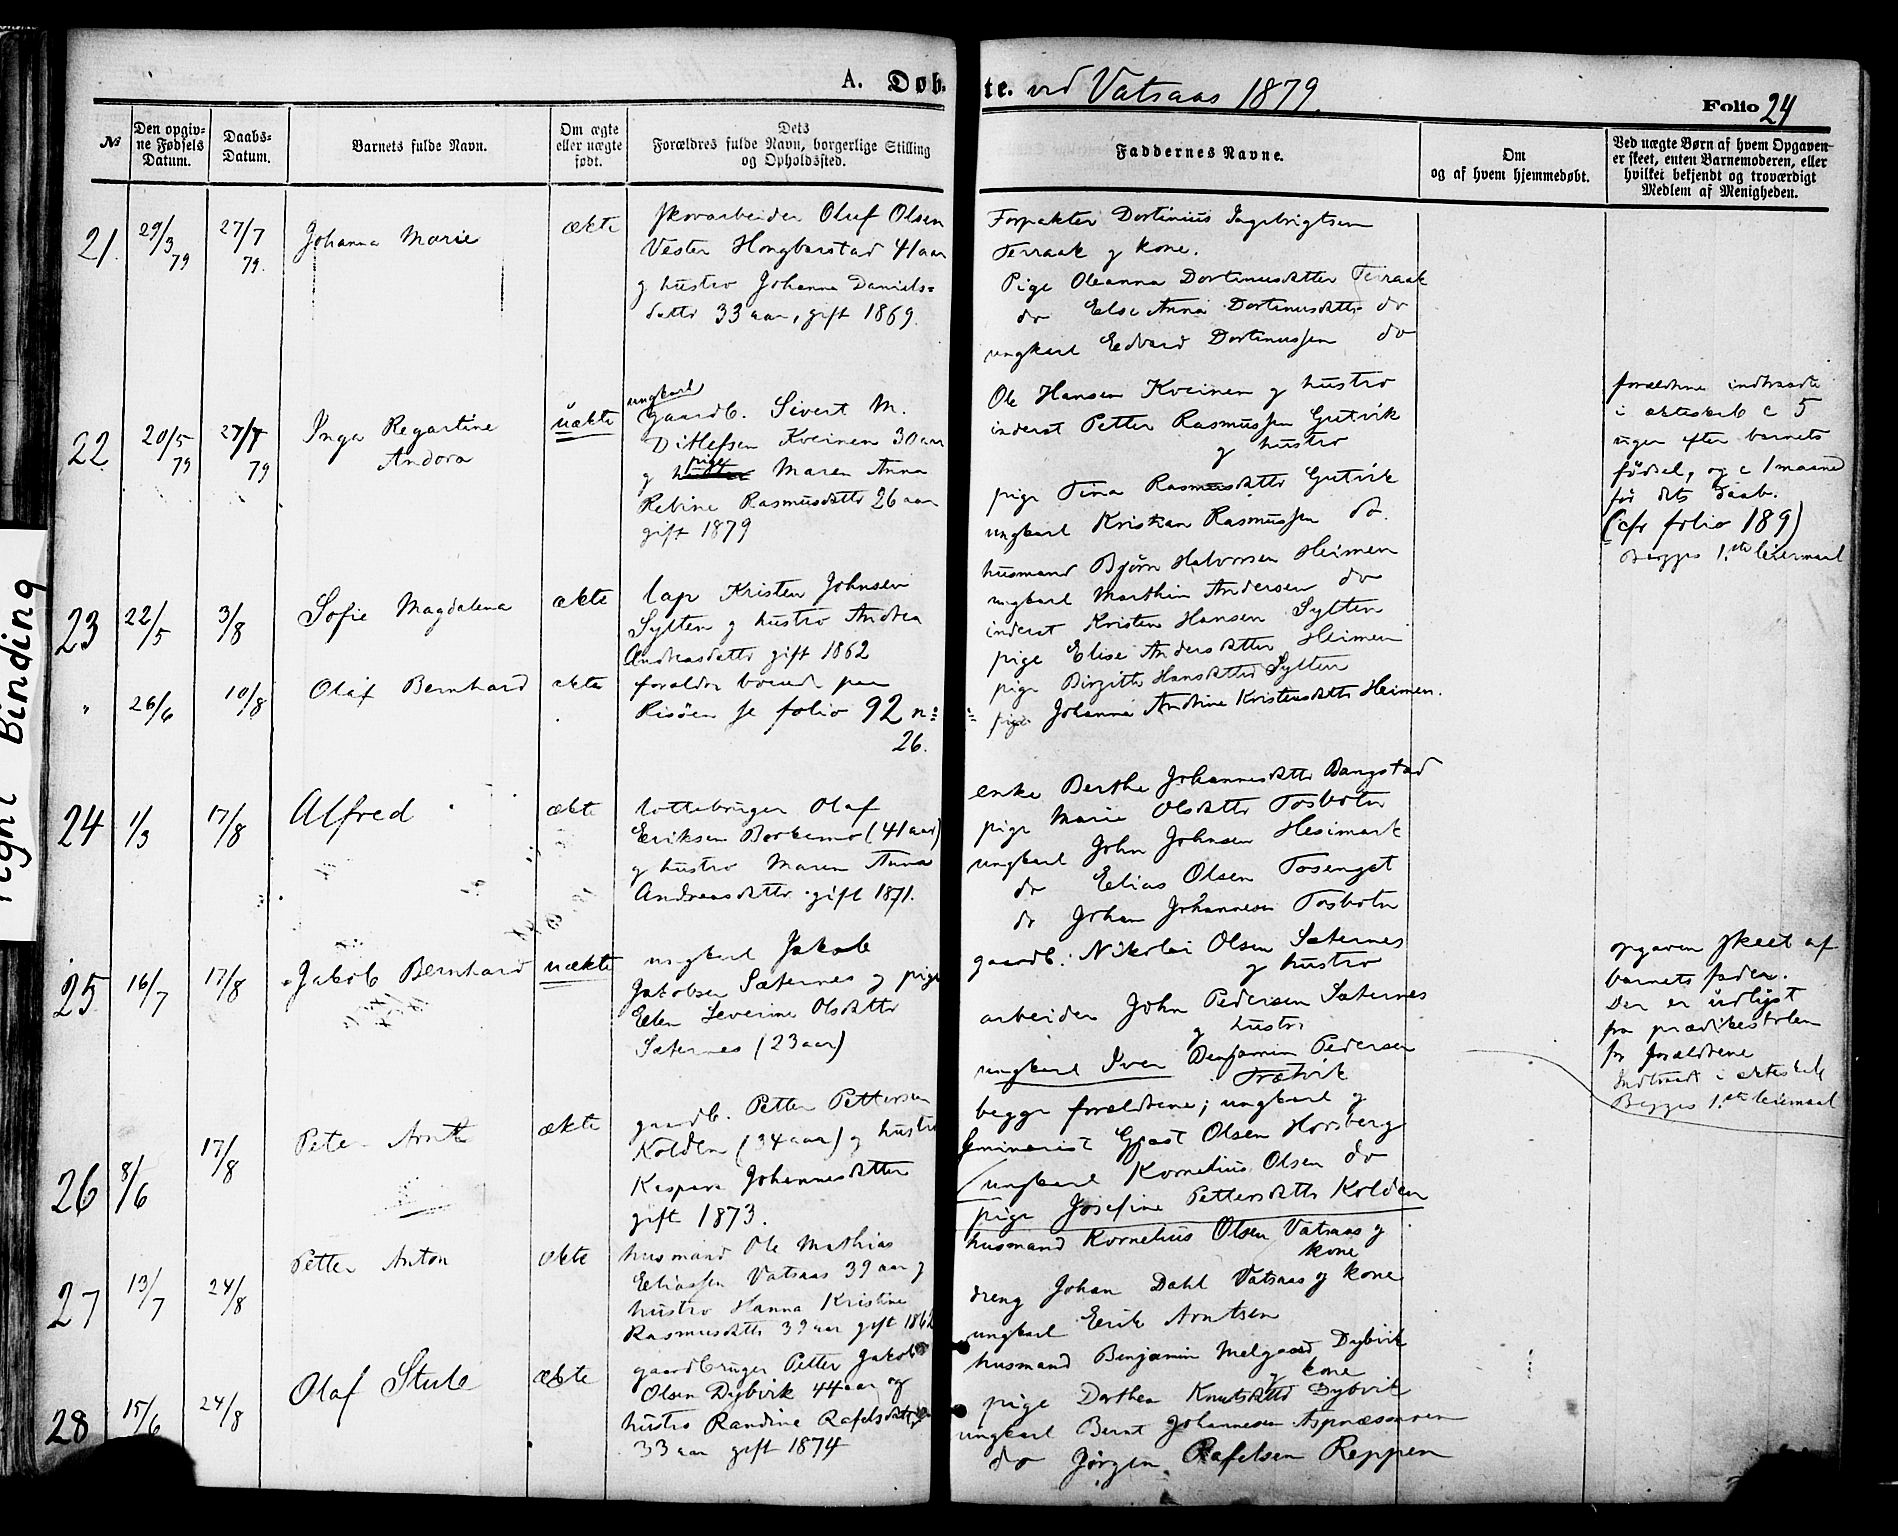 A. Døb- te. ved Vatsaas 1879.
Folio 24
№
Den opgiv-
ne Fødsels
Datum.
Daabs-
Datum.
Barnets fulde Navn.
Om ægte
eller uægte
født.
Dets
Forældres fulde Navn, borgerlige Stilling
og Opholdssted.
Faddernes Navne.
Om
og af hvem hjemmedøbt.
Ved uægte Børn af hvem Opgaven
er skeet, enten Barnemoderen, eller
hvilket bekjendt og troværdigt
Medlem af Menigheden.
21. 29/3 79 27/7 79. Johanna Marie ækte
skovarbeider Oluf Olsen
Vester 41 aar
g hustro Johanna Daniels=
datter 33 aar, gift 1869.
Forpakter Dortinius Ingebrigtsen
Terraak g kone.
Pige Oleanna Dortinusdatter Terraak
do Else Anna Dortinusdatter do
ungkarl Edvard Dortinussen do
22 20/5 79 27/7 79 Inga Regartine
Andora
uækte
ungkarl
gaardb. Sivert M.
Ditlefsen Kveinen 30 aar
g pige Maren Anna
Rebine Rasmusdatter 26 aar
gift 1879
Ole Hansen Kveinen g hustro
inderst Petter Rasmussen Gutvik
g hustro
pige Tina Rasmusdatter Gutvik
ungkarl Kristian Rasmussen do.
forældrene indtraadte
i ækteskab c 5
uger efter barnets
fødsel, og c 1 maaned
før dets daab.
(cfr folio 189)
Begges 1.ste leiermaal
23 22/5 3/8 Sofie Magdalena ækte
lap Kristen Johnsen
Sylten g hustro Andrea
Andreasdatter gift 1862
husmand Bjørn Halvorsen Heimen
ungkarl Marthin Andersen do
inderst Kristen Hansen Sylten
pige Elise Andersdatter Heimen
pige Birgitte Hansdatter Sylten
pige Johanna Andrine Kristensdatter Heimen.
" 26/6 10/8 Olaf Bernhard ækte
forældre boende paa
Risöen se folio 92 n:
26.
24 1/3 17/8 Alfred ækte
Olaf
Eriksen Borkemo (41 aar)
g hustro Maren Anna
Andreasdatter gift 1871.
enke Berthe Johannesdatter Bangstad
pige Marie Olsdatter Tosbotn
ungkarl John Johnsen Hesimark
do Elias Olsen Tosenget
do Johan Johannesen Tosbotn
25 16/7 17/8 Jakob Bernhard uækte
ungkarl Jakob
Jakobsen Sæternes g pige
Ellen Severine Olsdatter
Sæternes (23 aar)
gaardb. Nikolai Olsen Sæternes
g hustro
arbeider John Pedersen Sæternes
g hustro
ungkarl Iver Benjamin Pedersen
Trætvik
begge forældrene; ungkarl g
opgaven skeet af
barnets fader.
Der er üdlyst
fra prædikestolen
for forældrene
Indtraadt i ækteskab
Begges 1.ste leiermaal
26 8/6 17/8 Peter Arnt ækte
gaardb. Petter Pettersen
Kolden (34 aar) g hustro
Kaspara Johannesdatter
gift 1873.
seminarist Gjert Olsen Horsberg
ungkarl Kornelius Olsen do
pige Josefine Pettersdatter Kolden
27 13/7 24/8 Petter Anton ækte
husmand Ole Mathias
Eliassen Vatsaas 39 aar g
hustro Hanna Kristine
Rasmusdatter 39 aar gift 1862
husmand Kornelius Olsen Vatsaas g
kone
dreng Johan Dahl Vatsaas g kone
ungkarl Erik Arntsen
28 15/6 24/8 Olaf Stule ækte
gaardbruger Petter Jakob
Olsen Dybvik 44 aar og
hustro Randine Rafelsdatter
33 aar gift 1874
husmand Benjamin Melgaard Dybvik
g kone
pige Dorthea Knutsdatter Dybvik
ungkarl Bernt Johannesen
do Jørgen Rafelsen Reppen
Tight Binding